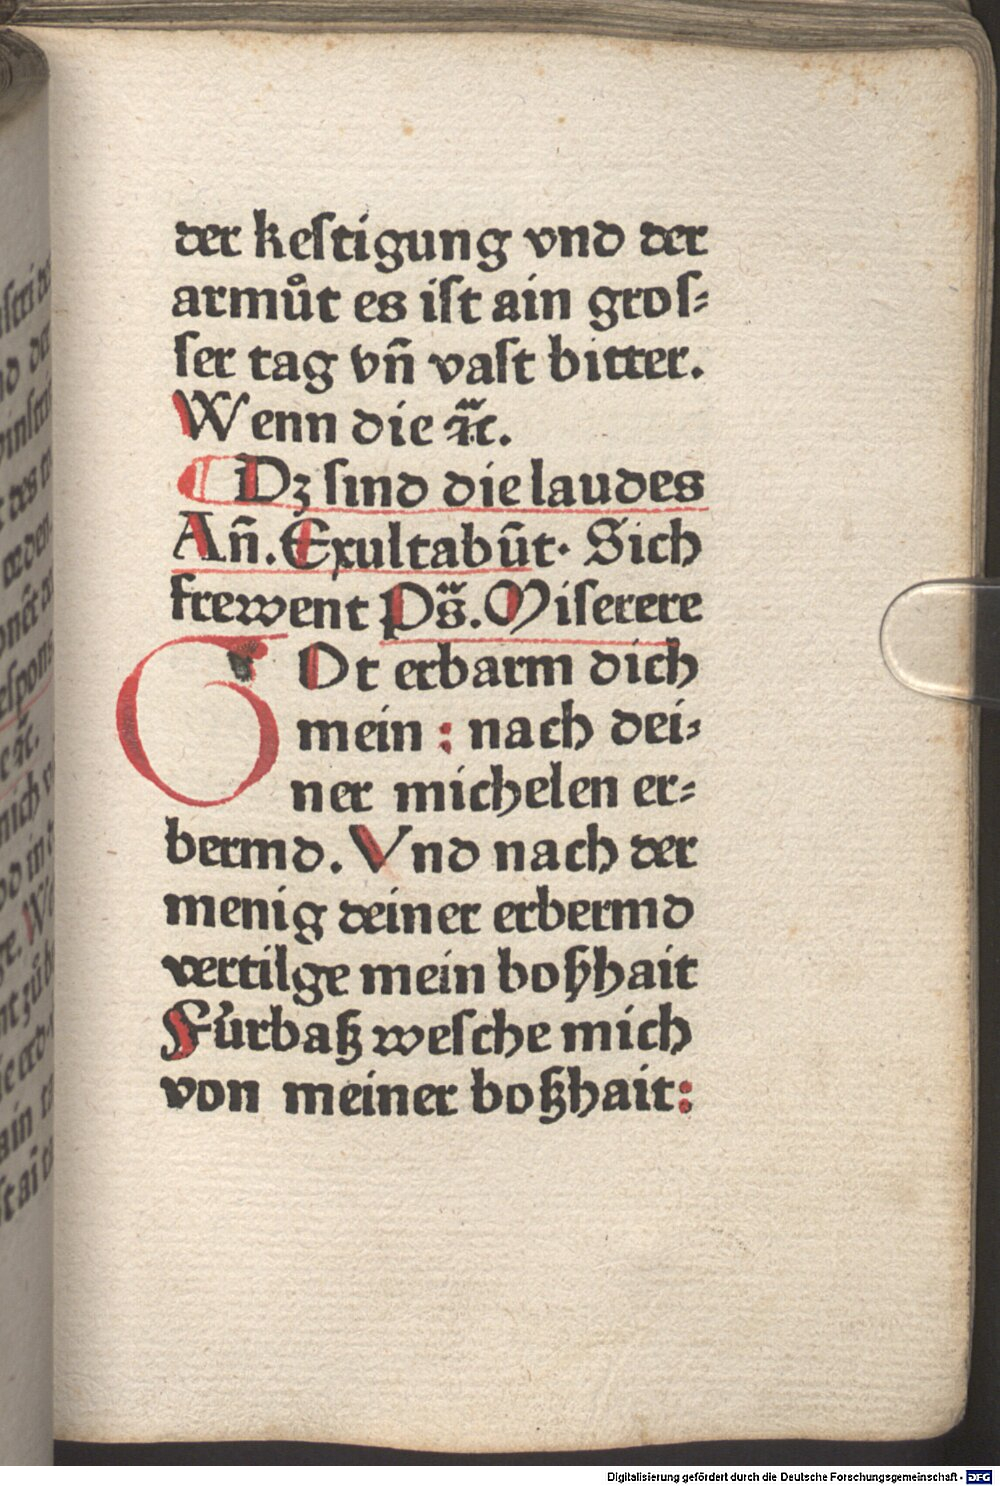 der keſtigung vnd der
armůt es iſt ain groſ⸗
ſer tag vn̄ vaſt bitter.
Wenn die ꝛc̃.
¶ Dz ſind die laudes
An̄. Exultabūt· Sich
frewent Ps̃. Miſerere
GOt erbarm dich
mein : nach dei⸗
ner michelen er⸗
bermd. Vnd nach der
menig deiner erbermd
vertilge mein boßhait
Fúrbaß weſche mich
von meiner boßhait:
Digitalisierung gefördert durch die Deutsche Forschungsgemeinschaft - DFG